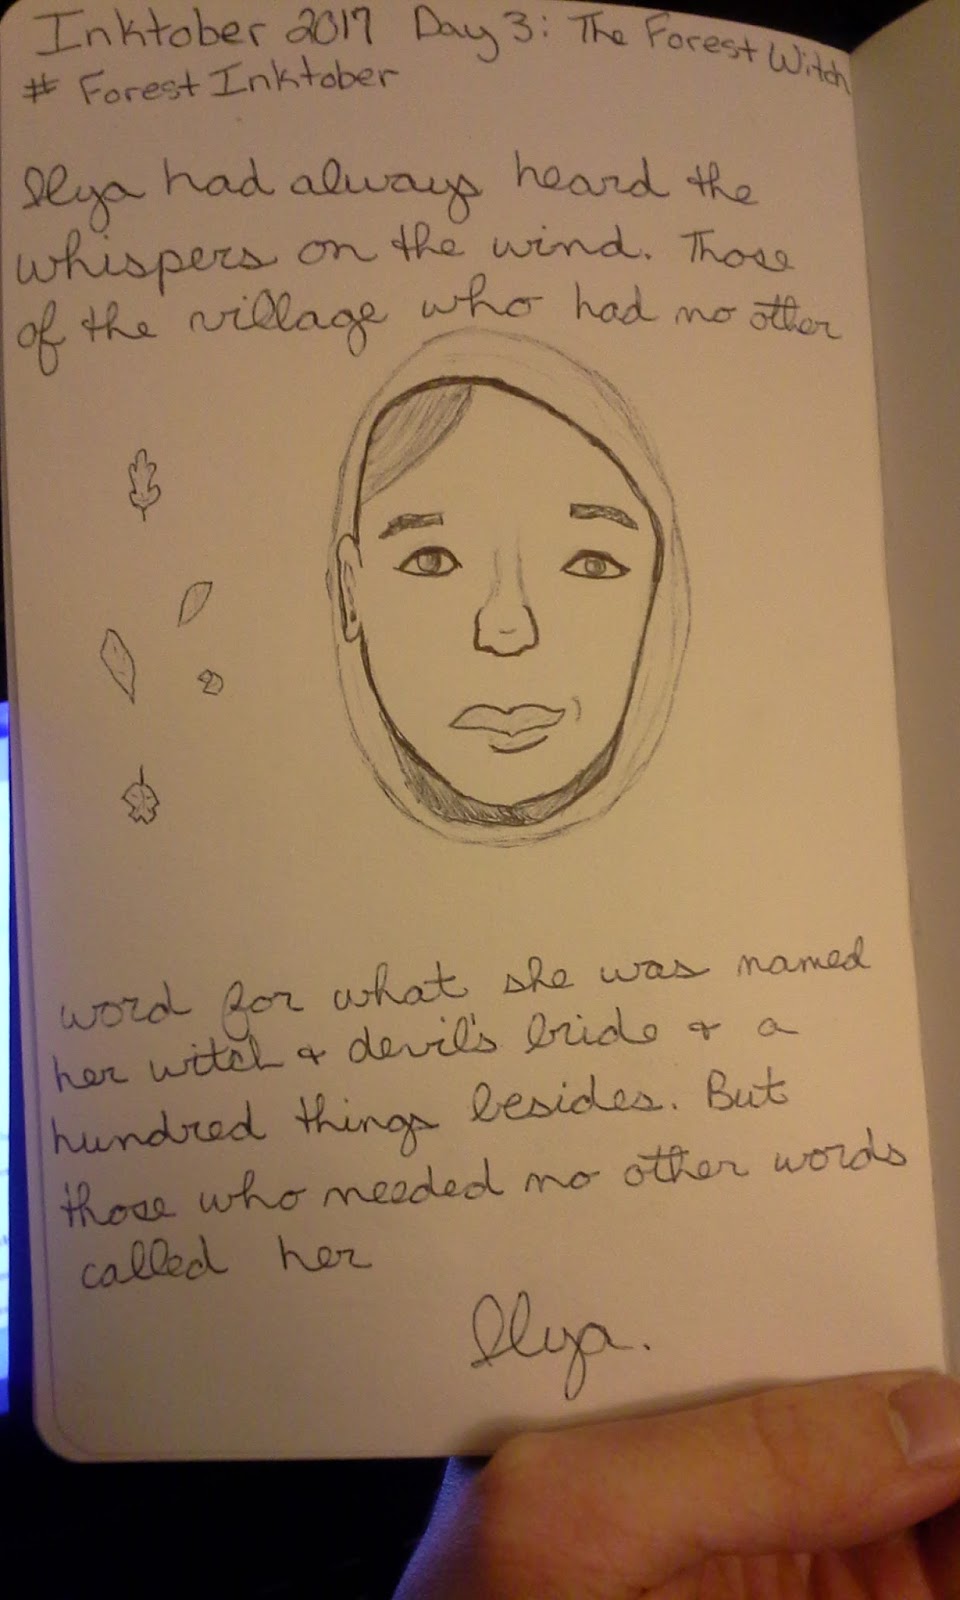 Inktober 2017 Day 3: The Forest Witch
# ForestInktober
Ilya had always heard the
whispers on the wind. Those
of the village who had no other
word for what she was named
her witch & devil's bride & a
hundred things besides. But
those who needed no other words
called her
Ilya.